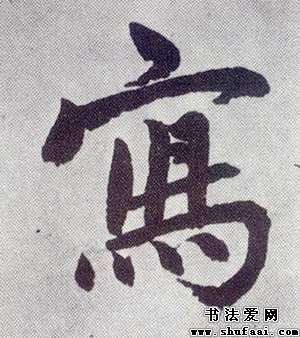 寫
书法爱网
www.shufaai.com